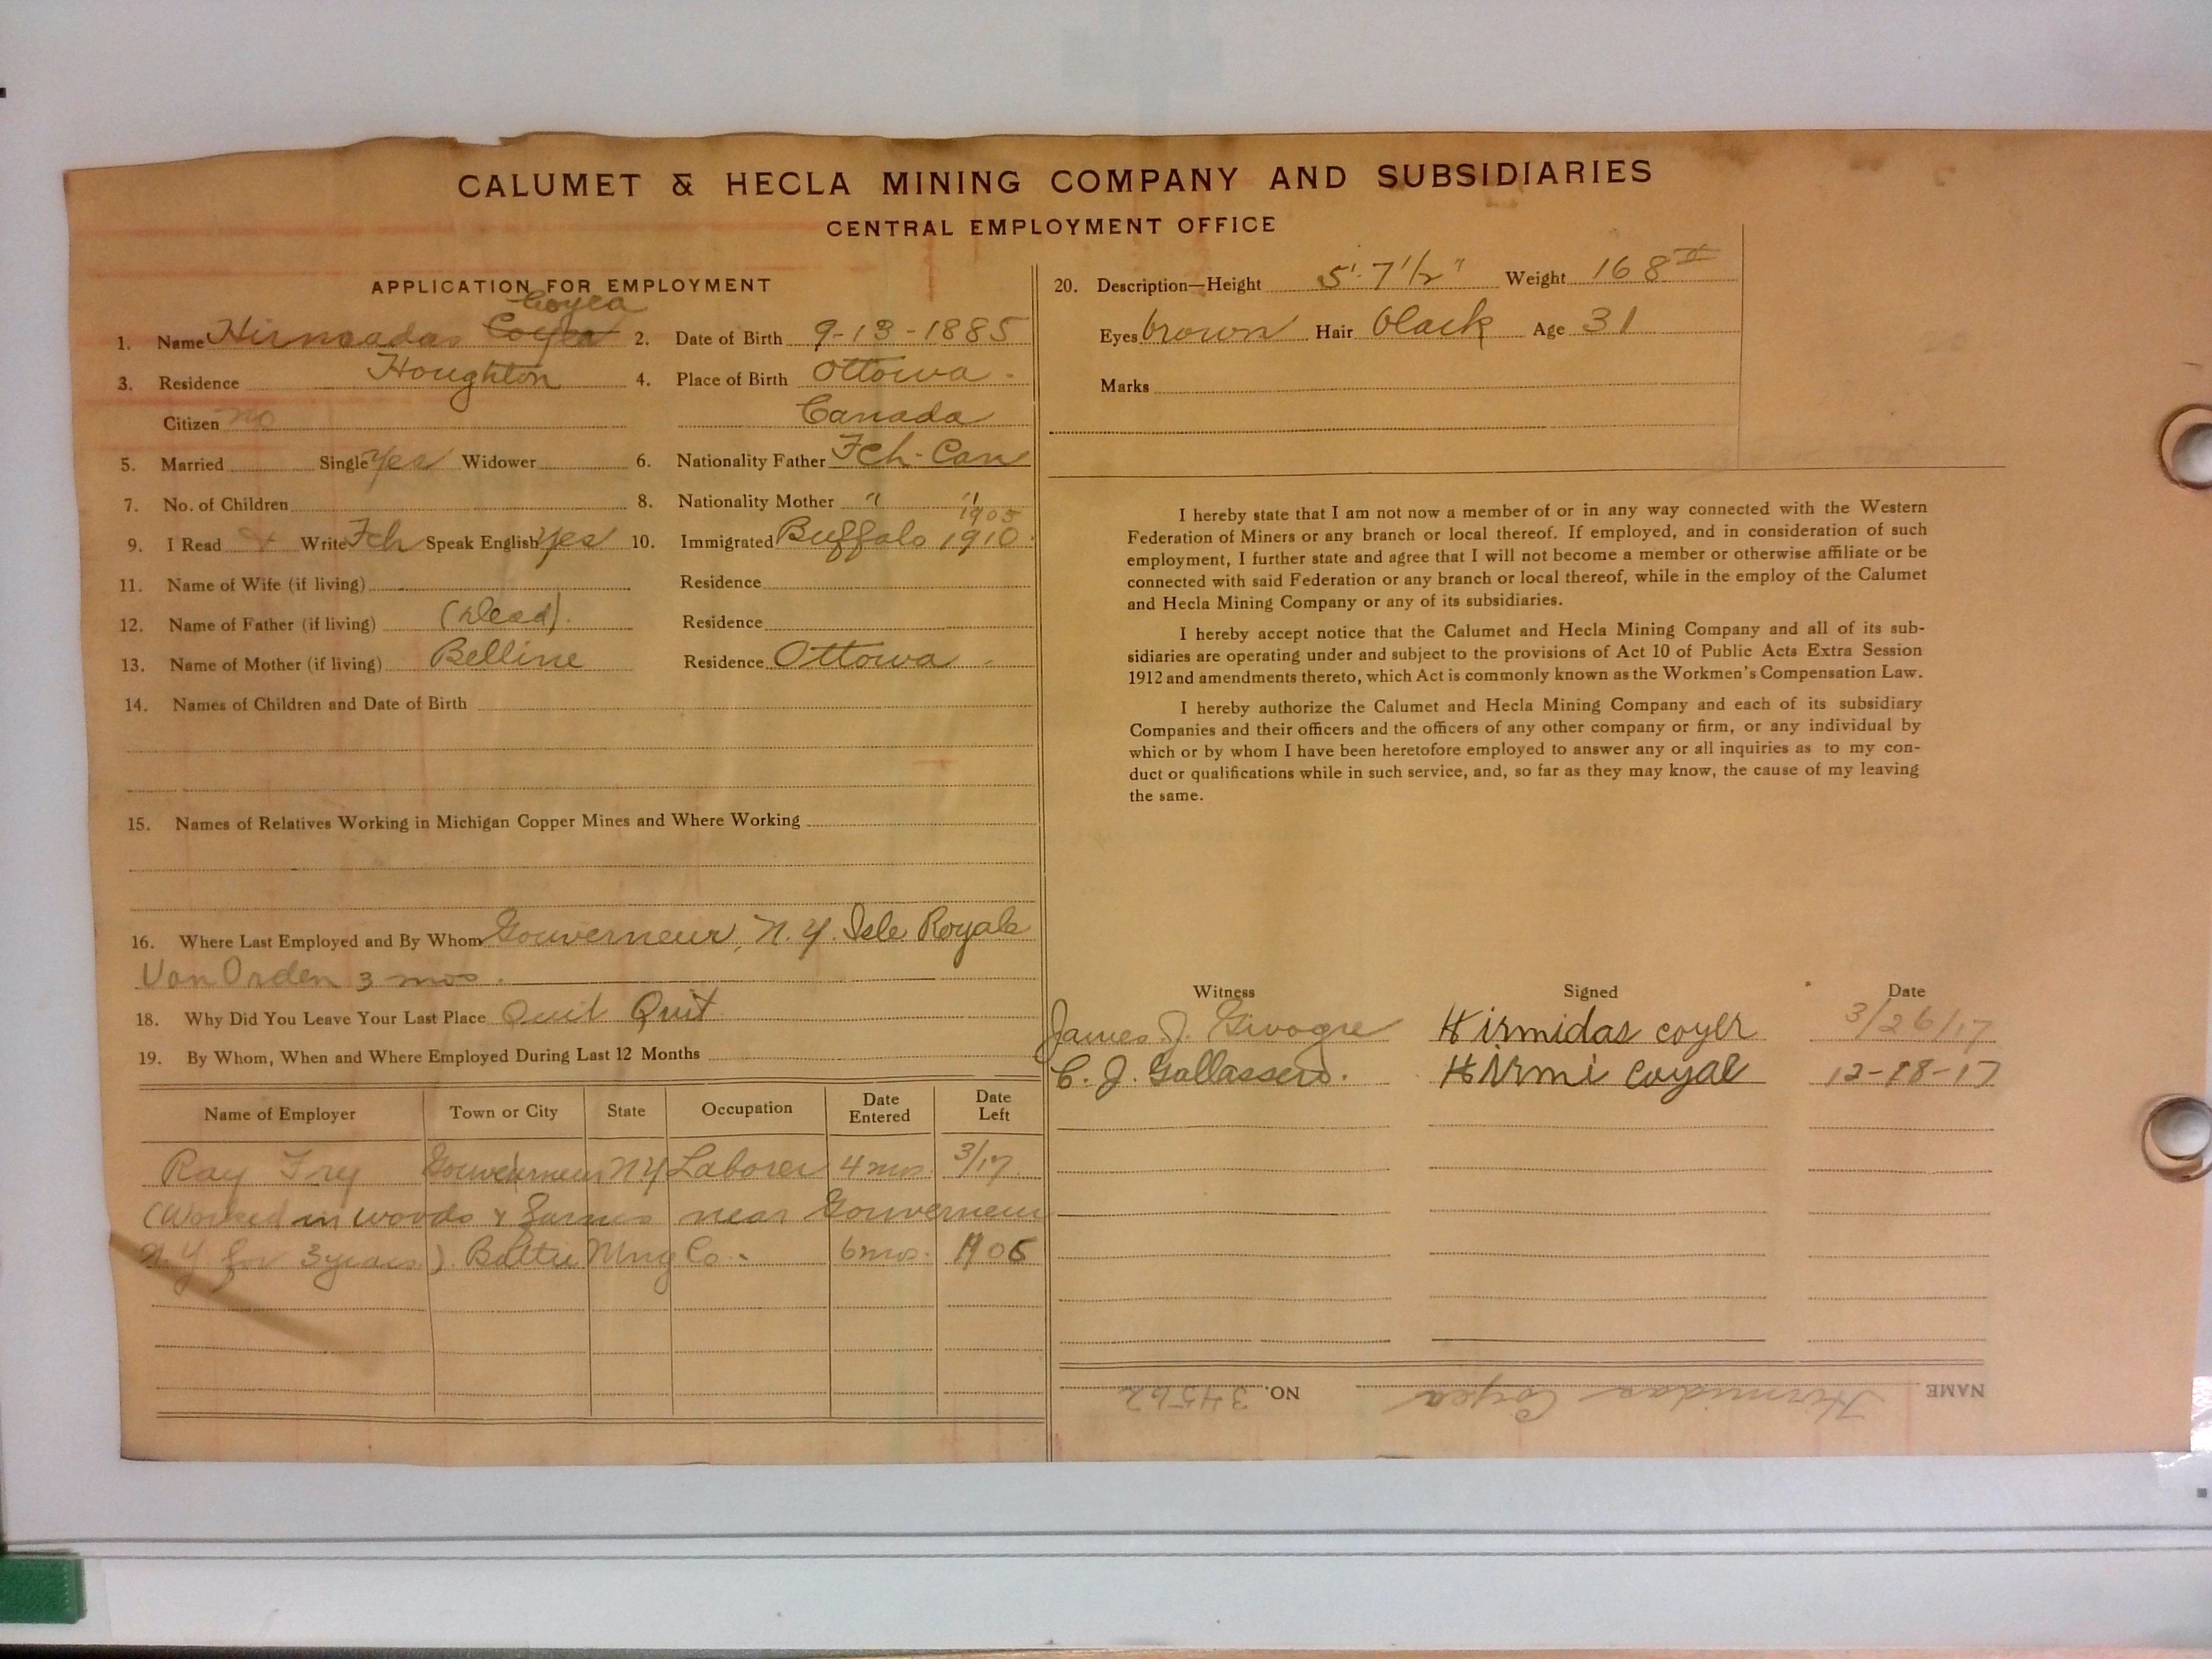 CALUMET & HECLA MINING COMPANY AND SUBSIDIARIES
CENTRAL EMPLOYMENT OFFICE
APPLICATION FOR EMPLOYMENT
Coyea
1. Name Hirmadas Coyea 2. Date of Birth 9-13-1885
3. Residence Houghton 4. Place of Birth Ottowa
Citizen no Canada
5. Married Single Yes Widower 6. Nationality Father Fch-Can
7. No. of Children 8. Nationality Mother " "
1905
9. I Read & Write Fch Speak English Yes 10. Immigrated Buffalo 1910
11. Name of Wife (if living) Residence
12. Name of Father (if living) (Dead). Residence
13. Name of Mother (if living) Belline Residence Ottowa
14. Names of Children and Date of Birth
15. Names of Relatives Working in Michigan Copper Mines and Where Working
16. Where Last Employed and By Whom Gouverneur, N.Y. Isle Royale
Van Orden 3 mos.
18. Why Did You Leave Your Last Place Quit Quit
19. By Whom, When and Where Employed During Last 12 Months
Name of Employer Town or City State Occupation Date Entered Date Left
Ray Frey Gouverneur N.Y Laborer 4 mos. 3/17
(Worked in woods & farms near Gouverneur
N.Y for 3 years). Baltic Mng Co. 6 mos. 1906
20. Description—Height 5'. 7 1/2" Weight 168#
Eyes brown Hair black Age 31
Marks
I hereby state that I am not now a member of or in any way connected with the Western
Federation of Miners or any branch or local thereof. If employed, and in consideration of such
employment, I further state and agree that I will not become a member or otherwise affiliate or be
connected with said Federation or any branch or local thereof, while in the employ of the Calumet
and Hecla Mining Company or any of its subsidiaries.
I hereby accept notice that the Calumet and Hecla Mining Company and all of its sub-
sidiaries are operating under and subject to the provisions of Act 10 of Public Acts Extra Session
1912 and amendments thereto, which Act is commonly known as the Workmen's Compensation Law.
I hereby authorize the Calumet and Hecla Mining Company and each of its subsidiary
Companies and their officers and the officers of any other company or firm, or any individual by
which or by whom I have been heretofore employed to answer any or all inquiries as to my con-
duct or qualifications while in such service, and, so far as they may know, the cause of my leaving
the same.
Witness Signed Date
James J. Hirmidas coyer 3/26/17
C. J. Hirmi coyal 12-18-17
NAME Hirmidas Coyea NO. 34562